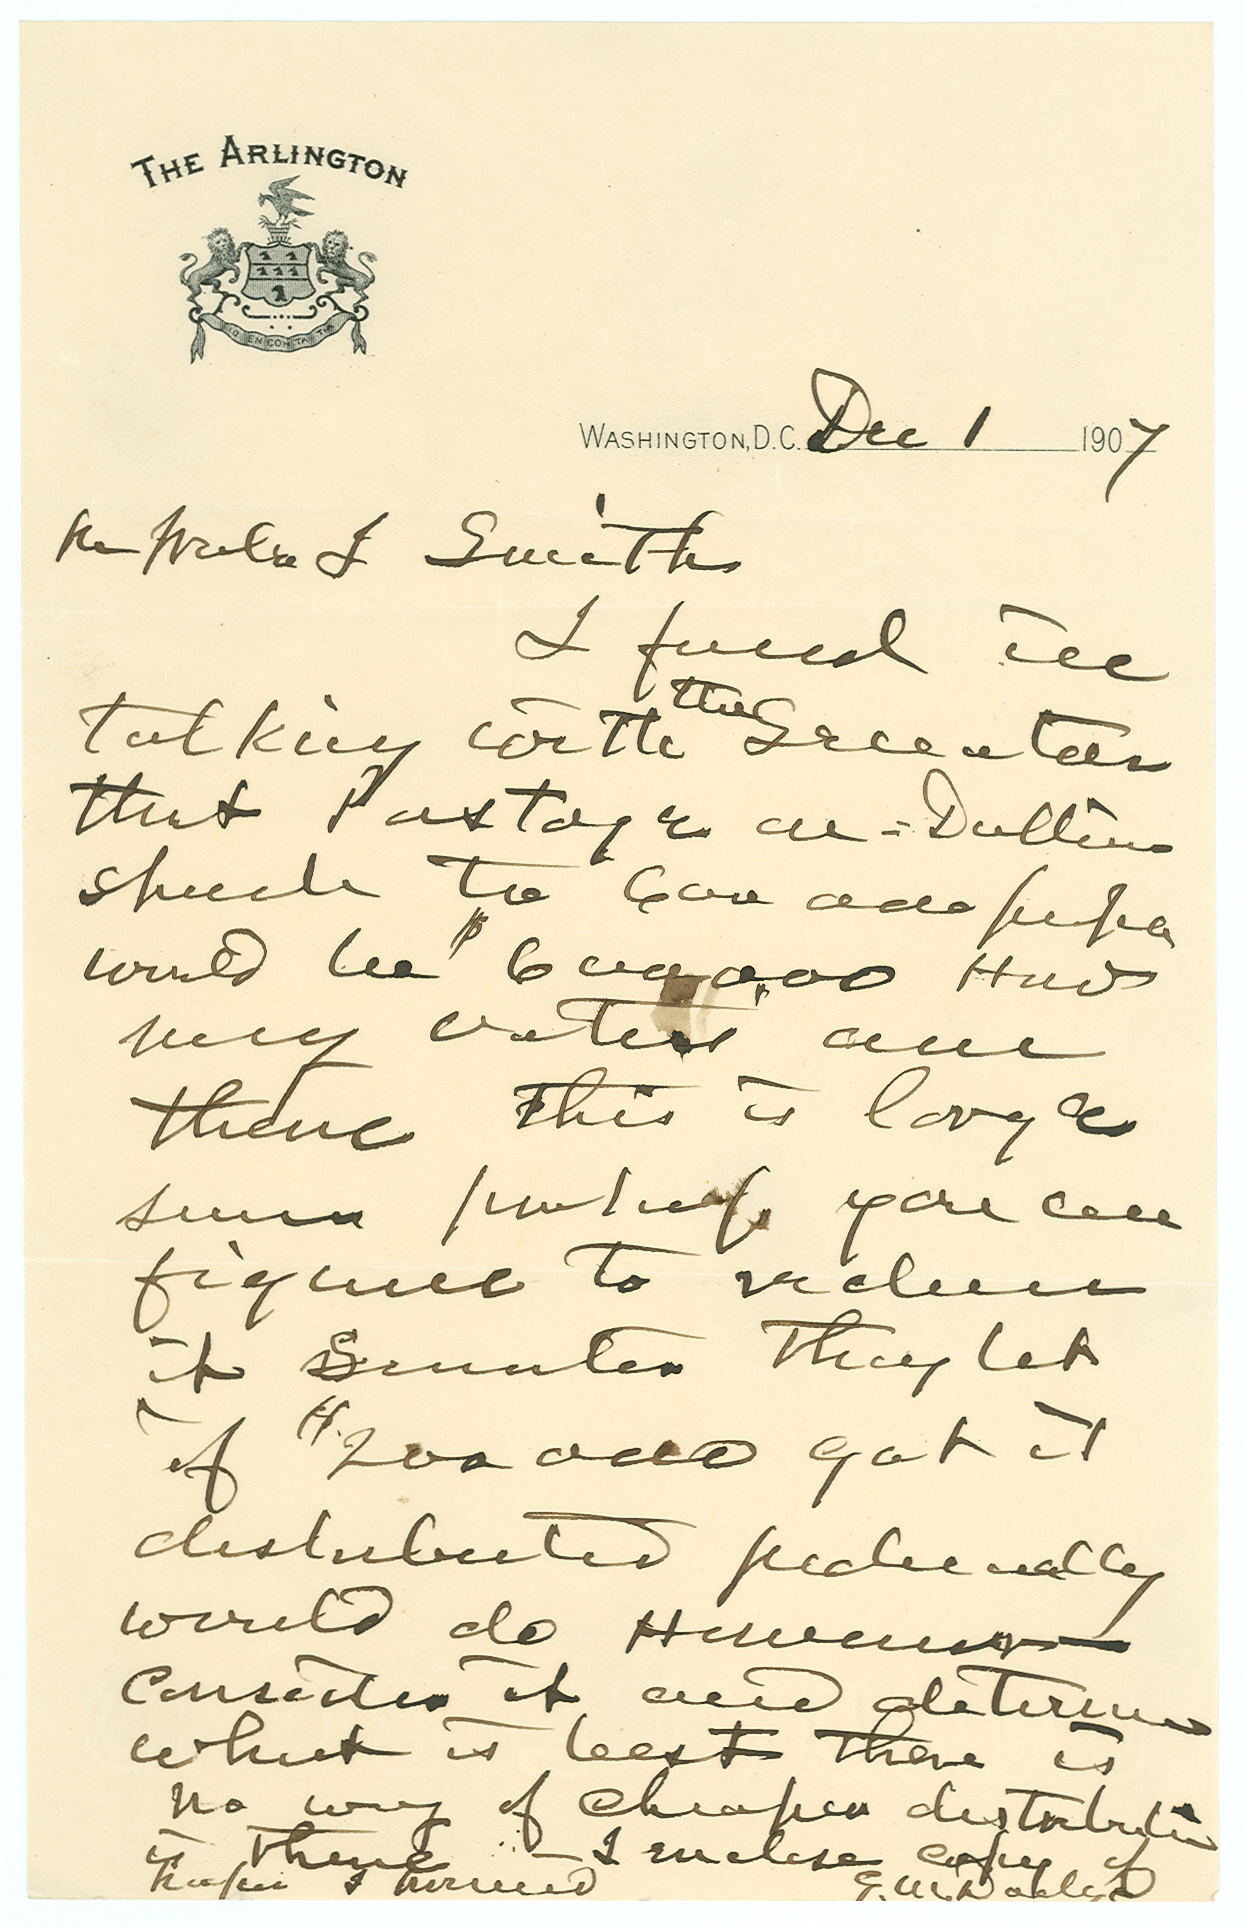 THE ARLINGTON
WASHINGTON, D.C. Dec 1 1907
Smith
I find in
talking with the Secretary
that Postage on Dolliver
speech to 600 000 people
would be $6000.00 How
many voters are
there This is large
sum perhaps you can
figure to reduce
it Senator They let
if 200 000 got it
distributed judicially
would do However
consider it and determine
what is best there is
no way of cheaper distribution
is there – I enclose copy of